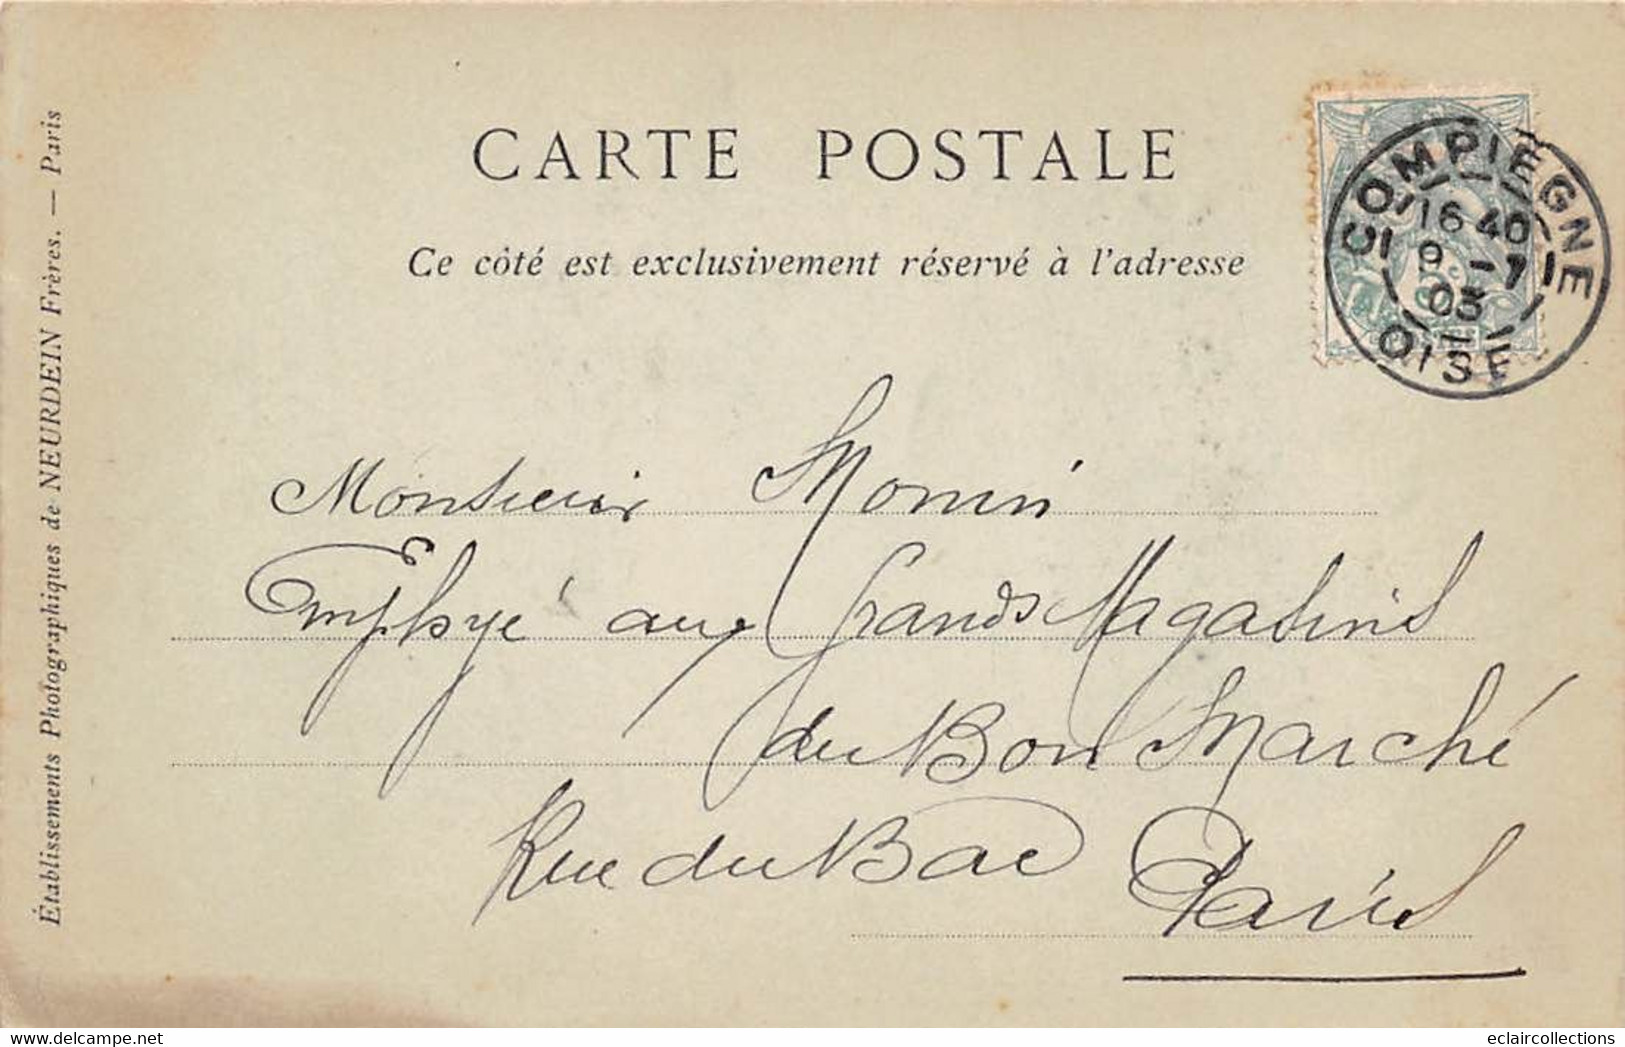 CARTE POSTALE
Ce côté est exclusivement réservé à l'adresse
COMPIEGNE
16 40
9 -7
03
OISE
Monsieur Monin
Employé aux Grands Magasins
du Bon Marché
Rue du Bac Paris
Établissements Photographiques de NEURDEIN Frères. — Paris
www.delcampe.net
eclaircollections